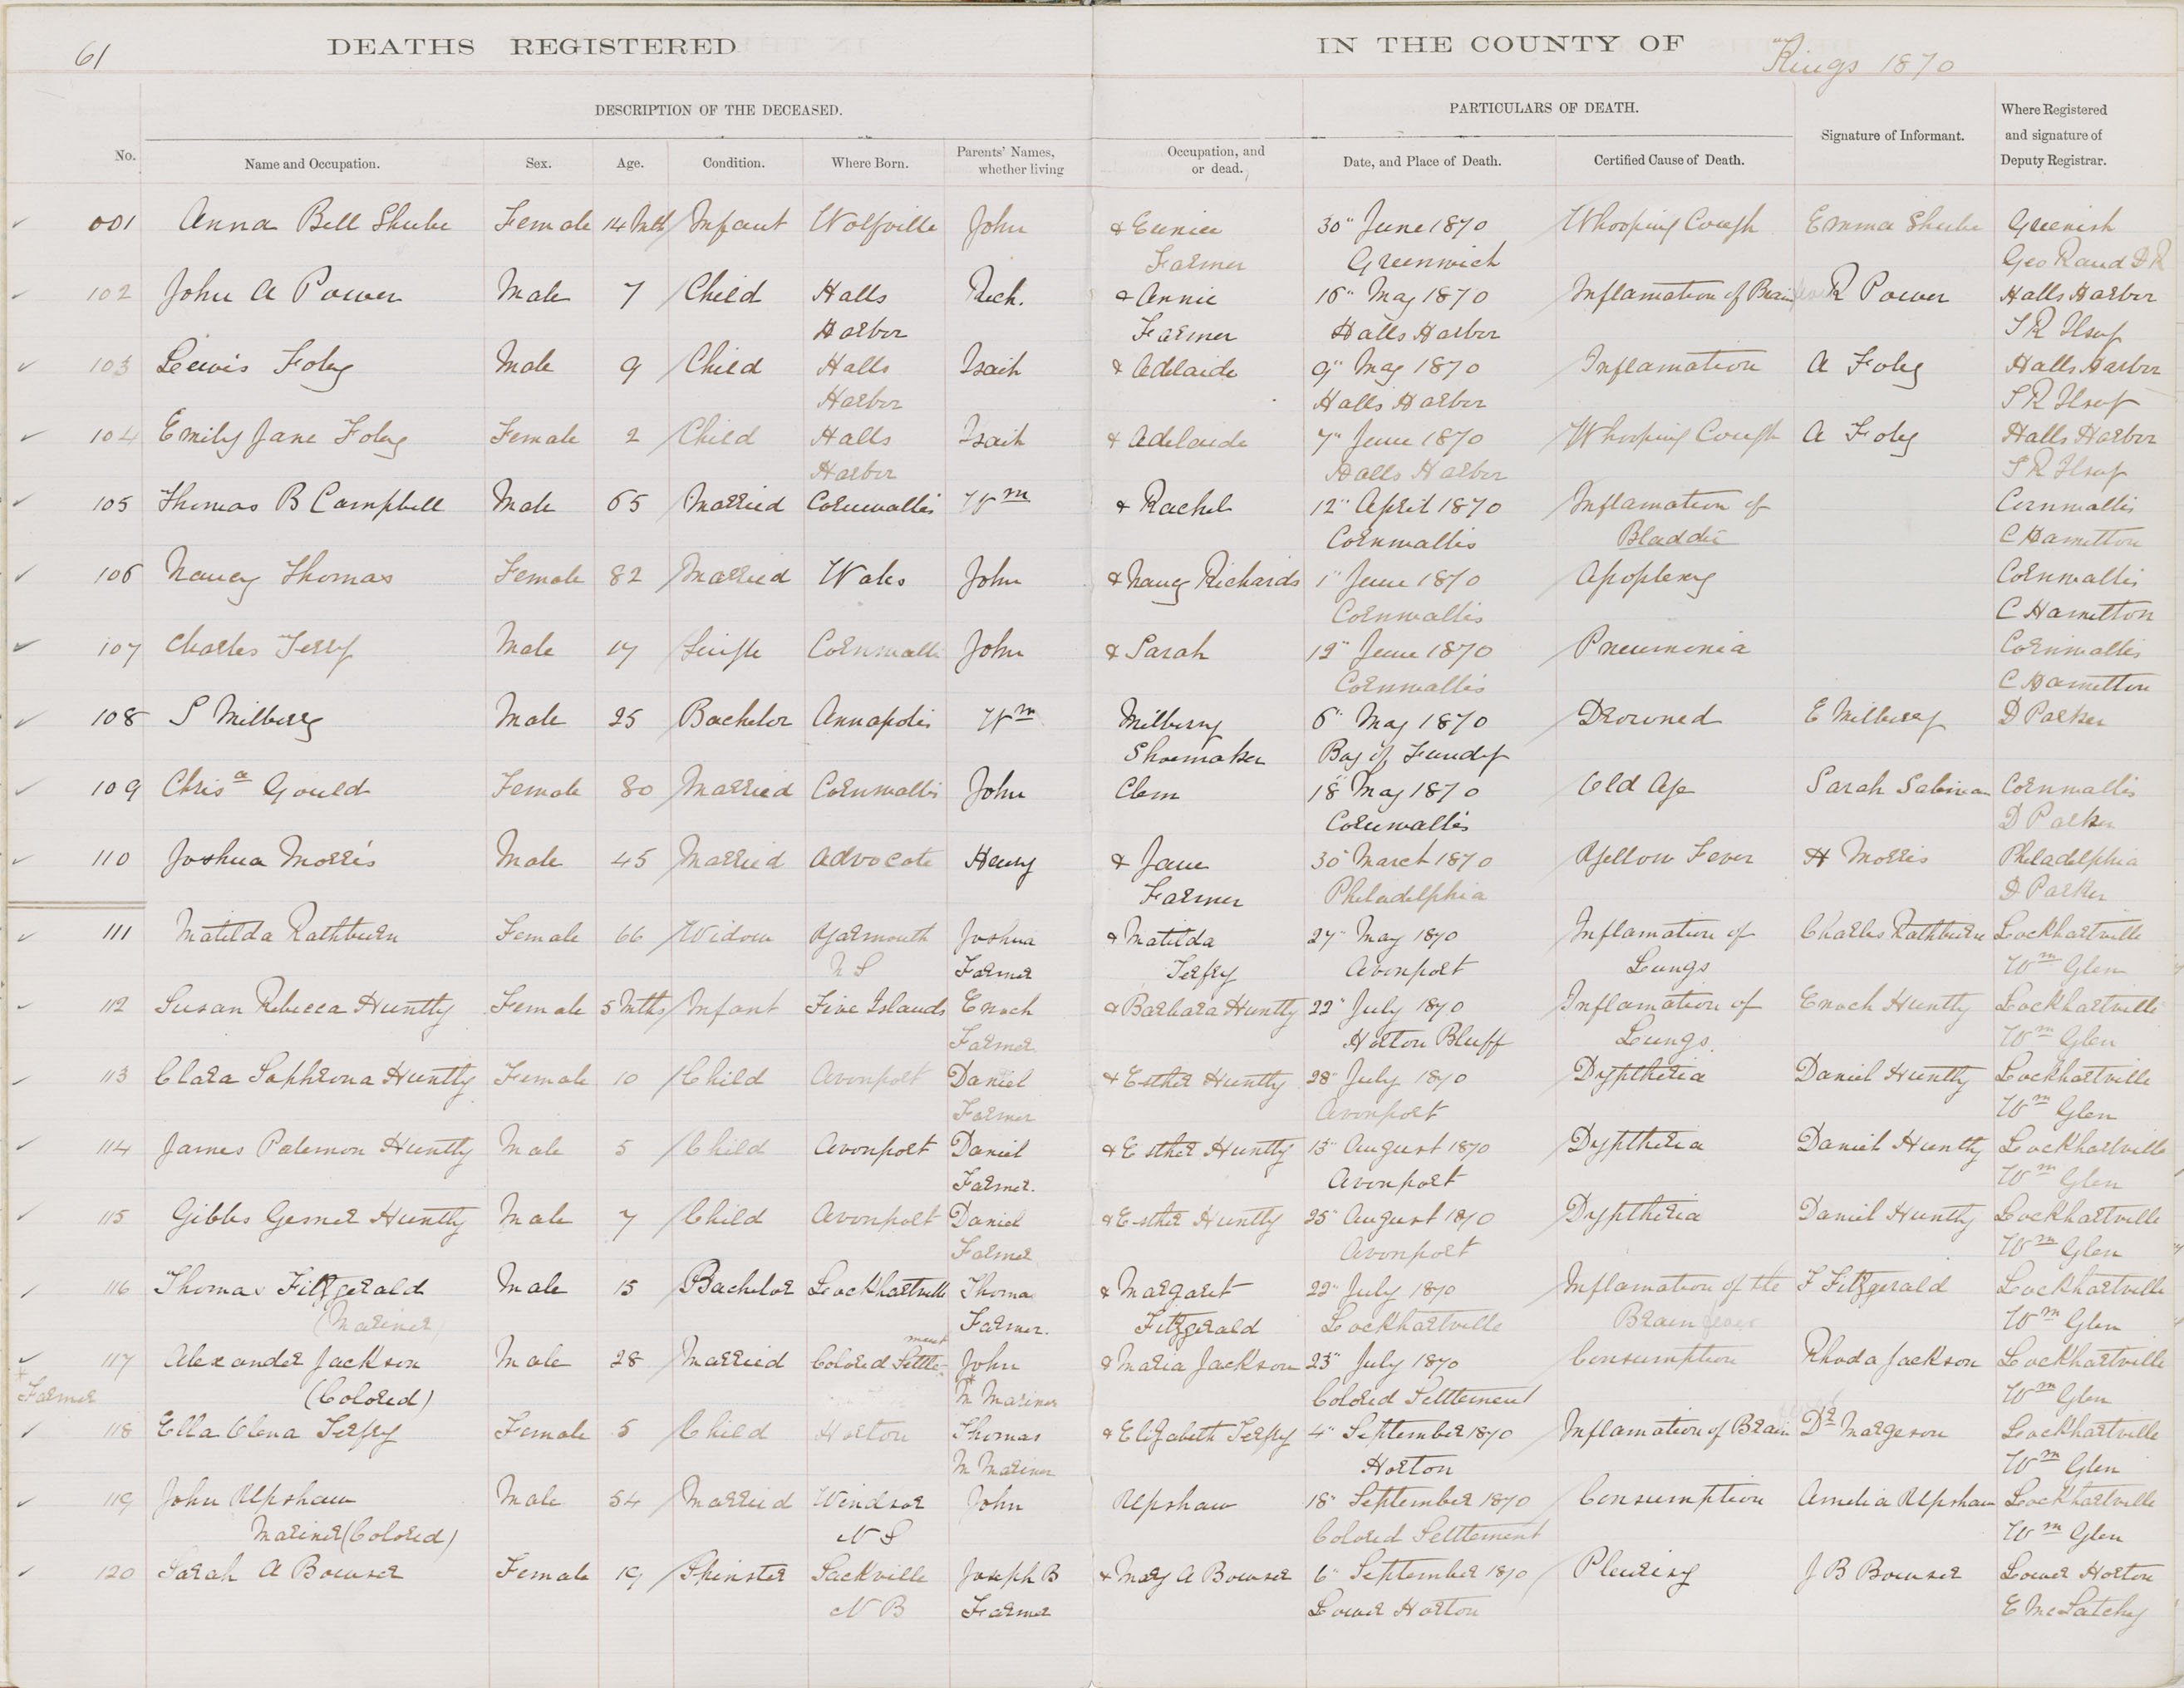 61 DEATHS REGISTERED IN THE COUNTY OF Kings 1870
DESCRIPTION OF THE DECEASED. PARTICULARS OF DEATH.
No. Name and Occupation. Sex. Age. Condition. Where Born. Parents' Names, whether living Occupation, and or dead. Date, and Place of Death. Certified Cause of Death. Signature of Informant. Where Registered and signature of Deputy Registrar.
001 Anna Bell Shube Female 14 Mth Infant Wolfville John & Eunice 30" June 1870 Whooping Cough Emma Shube Greenish
Farmer Greenwich Geo Rand D R
102 John A Power Male 7 Child Halls Rich. & Annie 16" May 1870 Inflamation of Brain R Power Halls Harbor
Harbor Farmer Halls Harbor S R Ilsuf
103 Lewis Foley Male 9 Child Halls Isaih & Adelaide 9" May 1870 Inflamation A Foley Halls Harbor
Harbor Halls Harbor S R Ilsuf
104 Emily Jane Foley Female 2 Child Halls Isaih & Adelaide 7" June 1870 Whooping Cough A Foley Halls Harbor
Harbor Halls Harbor S R Ilsuf
105 Thomas B Campbell Male 65 Married Cornwallis Wm & Rachel 12" April 1870 Inflamation of Cornwallis
Cornwallis Bladder C Hamilton
106 Nancy Thomas Female 82 Married Wales John & Nancy Richards 1" June 1870 Apoplexy Cornwallis
Cornwallis C Hamilton
107 Charles Terry Male 17 Single Cornwallis John & Sarah 12" June 1870 Pneumonia Cornwallis
Cornwallis C Hamilton
108 S Milbery Male 25 Bachelor Annapolis Wm Milbery 6" May 1870 Drowned E Milbery D Parker
Shoemaker Bay of Fundy
109 Chrisa Gould Female 80 Married Cornwallis John Clem 18" May 1870 Old Age Sarah Sabinean Cornwallis
Cornwallis D Parker
110 Joshua Morris Male 45 Married Advocate Henry & Jane 30" March 1870 Yellow Fever H Morris Philadelphia
Farmer Philadelphia D Parker
111 Matilda Rathburn Female 66 Widow Yarmouth Joshua & Matilda 27" May 1870 Inflamation of Charles Rathburn Lockhartville
N S Farmer Terfry Avonport Lungs Wm Glen
112 Susan Rebecca Huntly Female 5 Mths Infant Five Islands Enoch & Barbara Huntly 22" July 1870 Inflamation of Enoch Huntly Lockhartville
Farmer Horton Bluff Lungs. Wm Glen
113 Clara Saphrona Huntly Female 10 Child Avonport Daniel & Esther Huntly 28" July 1870 Dyptheria Daniel Huntly Lockhartville
Farmer Avonport Wm Glen
114 James Palemon Huntly Male 5 Child Avonport Daniel & Esther Huntly 13" August 1870 Dyptheria Daniel Huntly Lockhartville
Farmer. Avonport Wm Glen
115 Gibbs Gesner Huntly Male 7 Child Avonport Daniel & Esther Huntly 25" August 1870 Dyptheria Daniel Huntly Lockhartville
Farmer Avonport Wm Glen
116 Thomas Fitzgerald Male 15 Bachelor Lockhartville Thomas & Margaret 22" July 1870 Inflamation of the F Fitzgerald Lockhartville
(Mariner) Farmer. Fitzgerald Lockhartville Brain fever Wm Glen
117 Alexander Jackson Male 28 Married Colored Settlement John & Maria Jackson 23" July 1870 Consumption Rhoda Jackson Lockhartville
Farmer (Colored) M Mariner Colored Settlement Wm Glen
118 Ella Elena Terfry Female 5 Child Horton Thomas & Elizabeth Terfry 4" September 1870 Inflamation of Brain Dr Margeson Lockhartville
M Mariner Horton Wm Glen
119 John Upshaw Male 54 Married Windsor John Upshaw 18" September 1870 Consumption Amelia Upshaw Lockhartville
Mariner (Colored) N S Colored Settlement Wm Glen
120 Sarah A Bowser Female 19 Spinster Sackville Joseph B & Mary A Bowser 6" September 1870 Pleurisy J B Bowser Lower Horton
N B Farmer Lower Horton E McLatchy